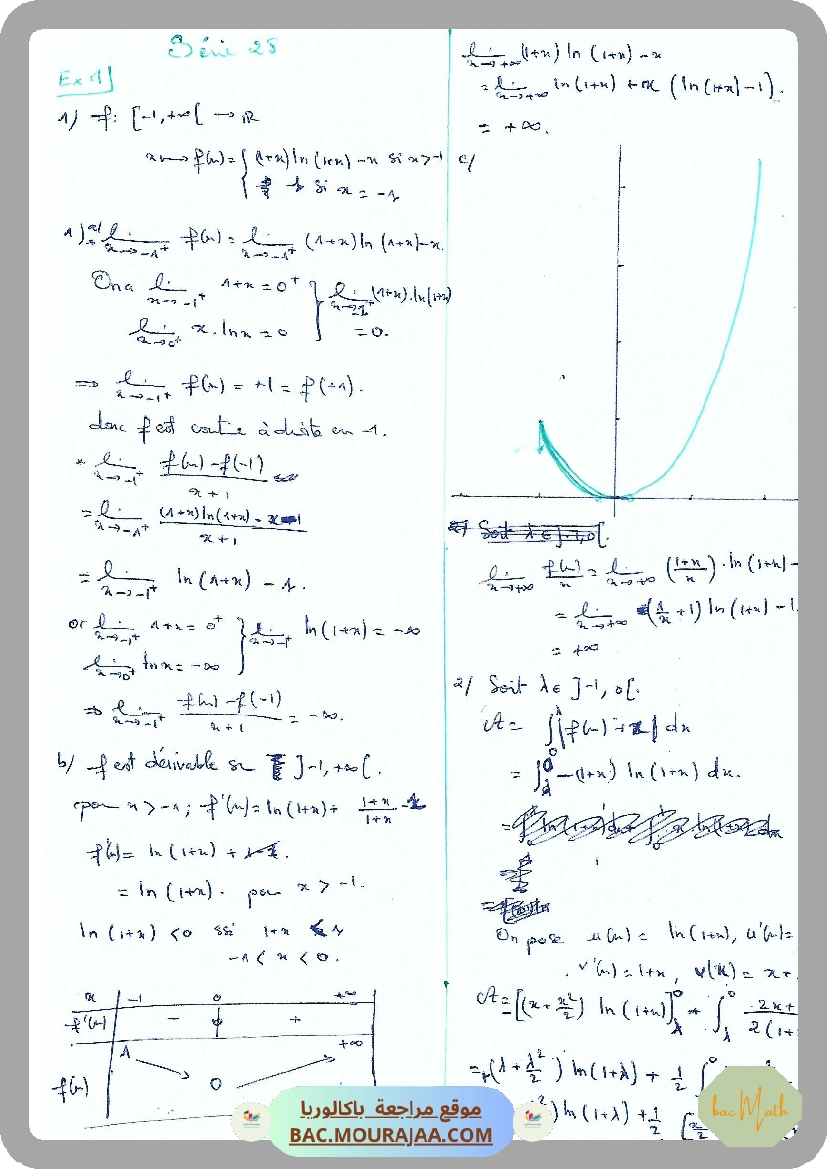 Série 28
Ex 1]
1) f: [-1,+∞[ → ℝ
x ↦ f(x) = { (1+x) ln(1+x) - x si x > -1
1 si x = -1
1) a) lim x→-1⁺ f(x) = lim x→-1⁺ (1+x) ln(1+x) - x.
On a lim x→-1⁺ 1+x = 0⁺ } lim (1+x).ln(1+x)
lim x→0⁺ x.ln x = 0 } = 0.
⇒ lim x→-1⁺ f(x) = +1 = f(-1).
donc f est continue à droite en -1.
* lim x→-1⁺ (f(x) - f(-1))/(x+1)
= lim x→-1⁺ ((1+x) ln(1+x) - x - 1)/(x+1)
= lim x→-1⁺ ln(1+x) - 1.
or lim x→-1⁺ 1+x = 0⁺ } lim x→-1⁺ ln(1+x) = -∞
lim x→0⁺ ln x = -∞
⇒ lim x→-1⁺ (f(x) - f(-1))/(x+1) = -∞.
b/ f est dérivable sur ]-1,+∞[.
pour x > -1; f'(x) = ln(1+x) + (1+x)/(1+x) - 1
f'(x) = ln(1+x) + 1-1.
= ln(1+x). pour x > -1.
ln(1+x) < 0 ssi 1+x < 1
-1 < x < 0.
x -1 0 +∞
f'(x) - 0 +
1 +∞
f(x) 0
lim x→+∞ (1+x) ln(1+x) - x
= lim x→+∞ ln(1+x) + x (ln(1+x) - 1).
= +∞.
c/
Soit λ ∈ ]-1,0[.
lim x→+∞ f(x)/x = lim x→+∞ ((1+x)/x).ln(1+x) -
= lim x→+∞ (1/x + 1) ln(1+x) - 1
= +∞
2/ Soit λ ∈ ]-1, 0[.
𝒜 = ∫ |f(x) + x| dx
= ∫ -(1+x) ln(1+x) dx.
On pose u(x) = ln(1+x), u'(x) =
v'(x) = 1+x, v(x) = x +
𝒜 = [(x + x²/2) ln(1+x)] + ∫ 2x+ / 2(1+
= (λ + λ²/2) ln(1+λ) + 1/2 ∫
²/2) ln(1+λ) + 1/2 [
موقع مراجعة باكالوريا
BAC.MOURAJAA.COM
bac Math